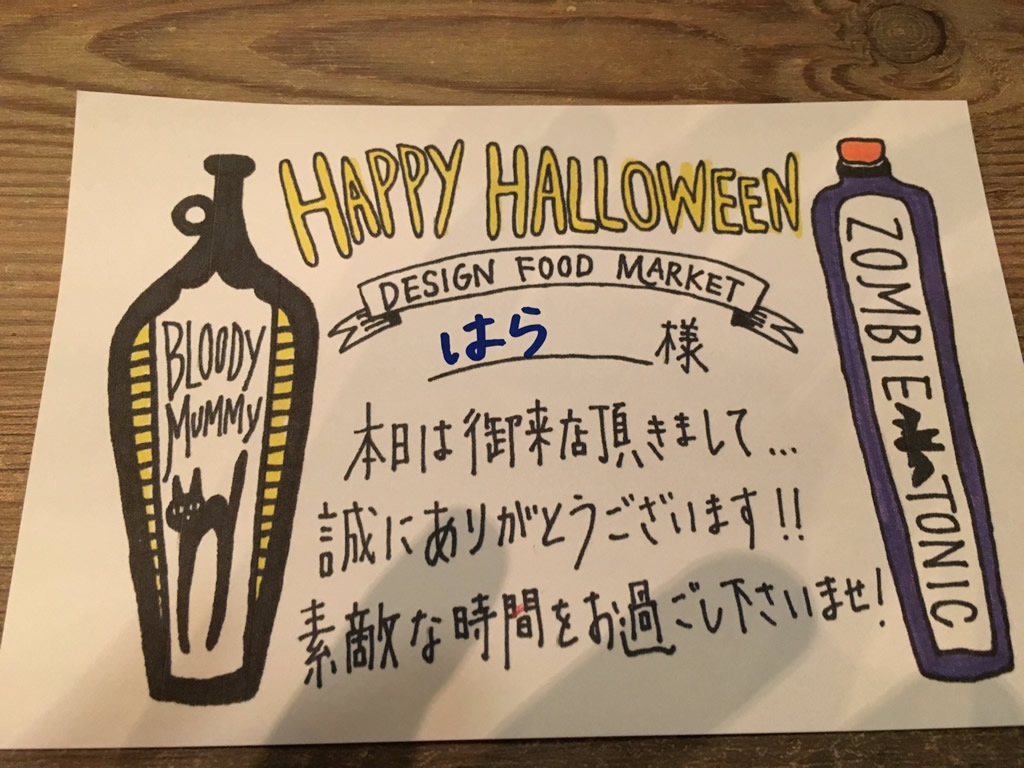 HAPPY HALLOWEEN
DESIGN FOOD MARKET
はら 様
本日は御来店頂きまして...
誠にありがとうございます!!
素敵な時間をお過ごし下さいませ!
BLOODY
MUMMY
ZOMBIE TONIC